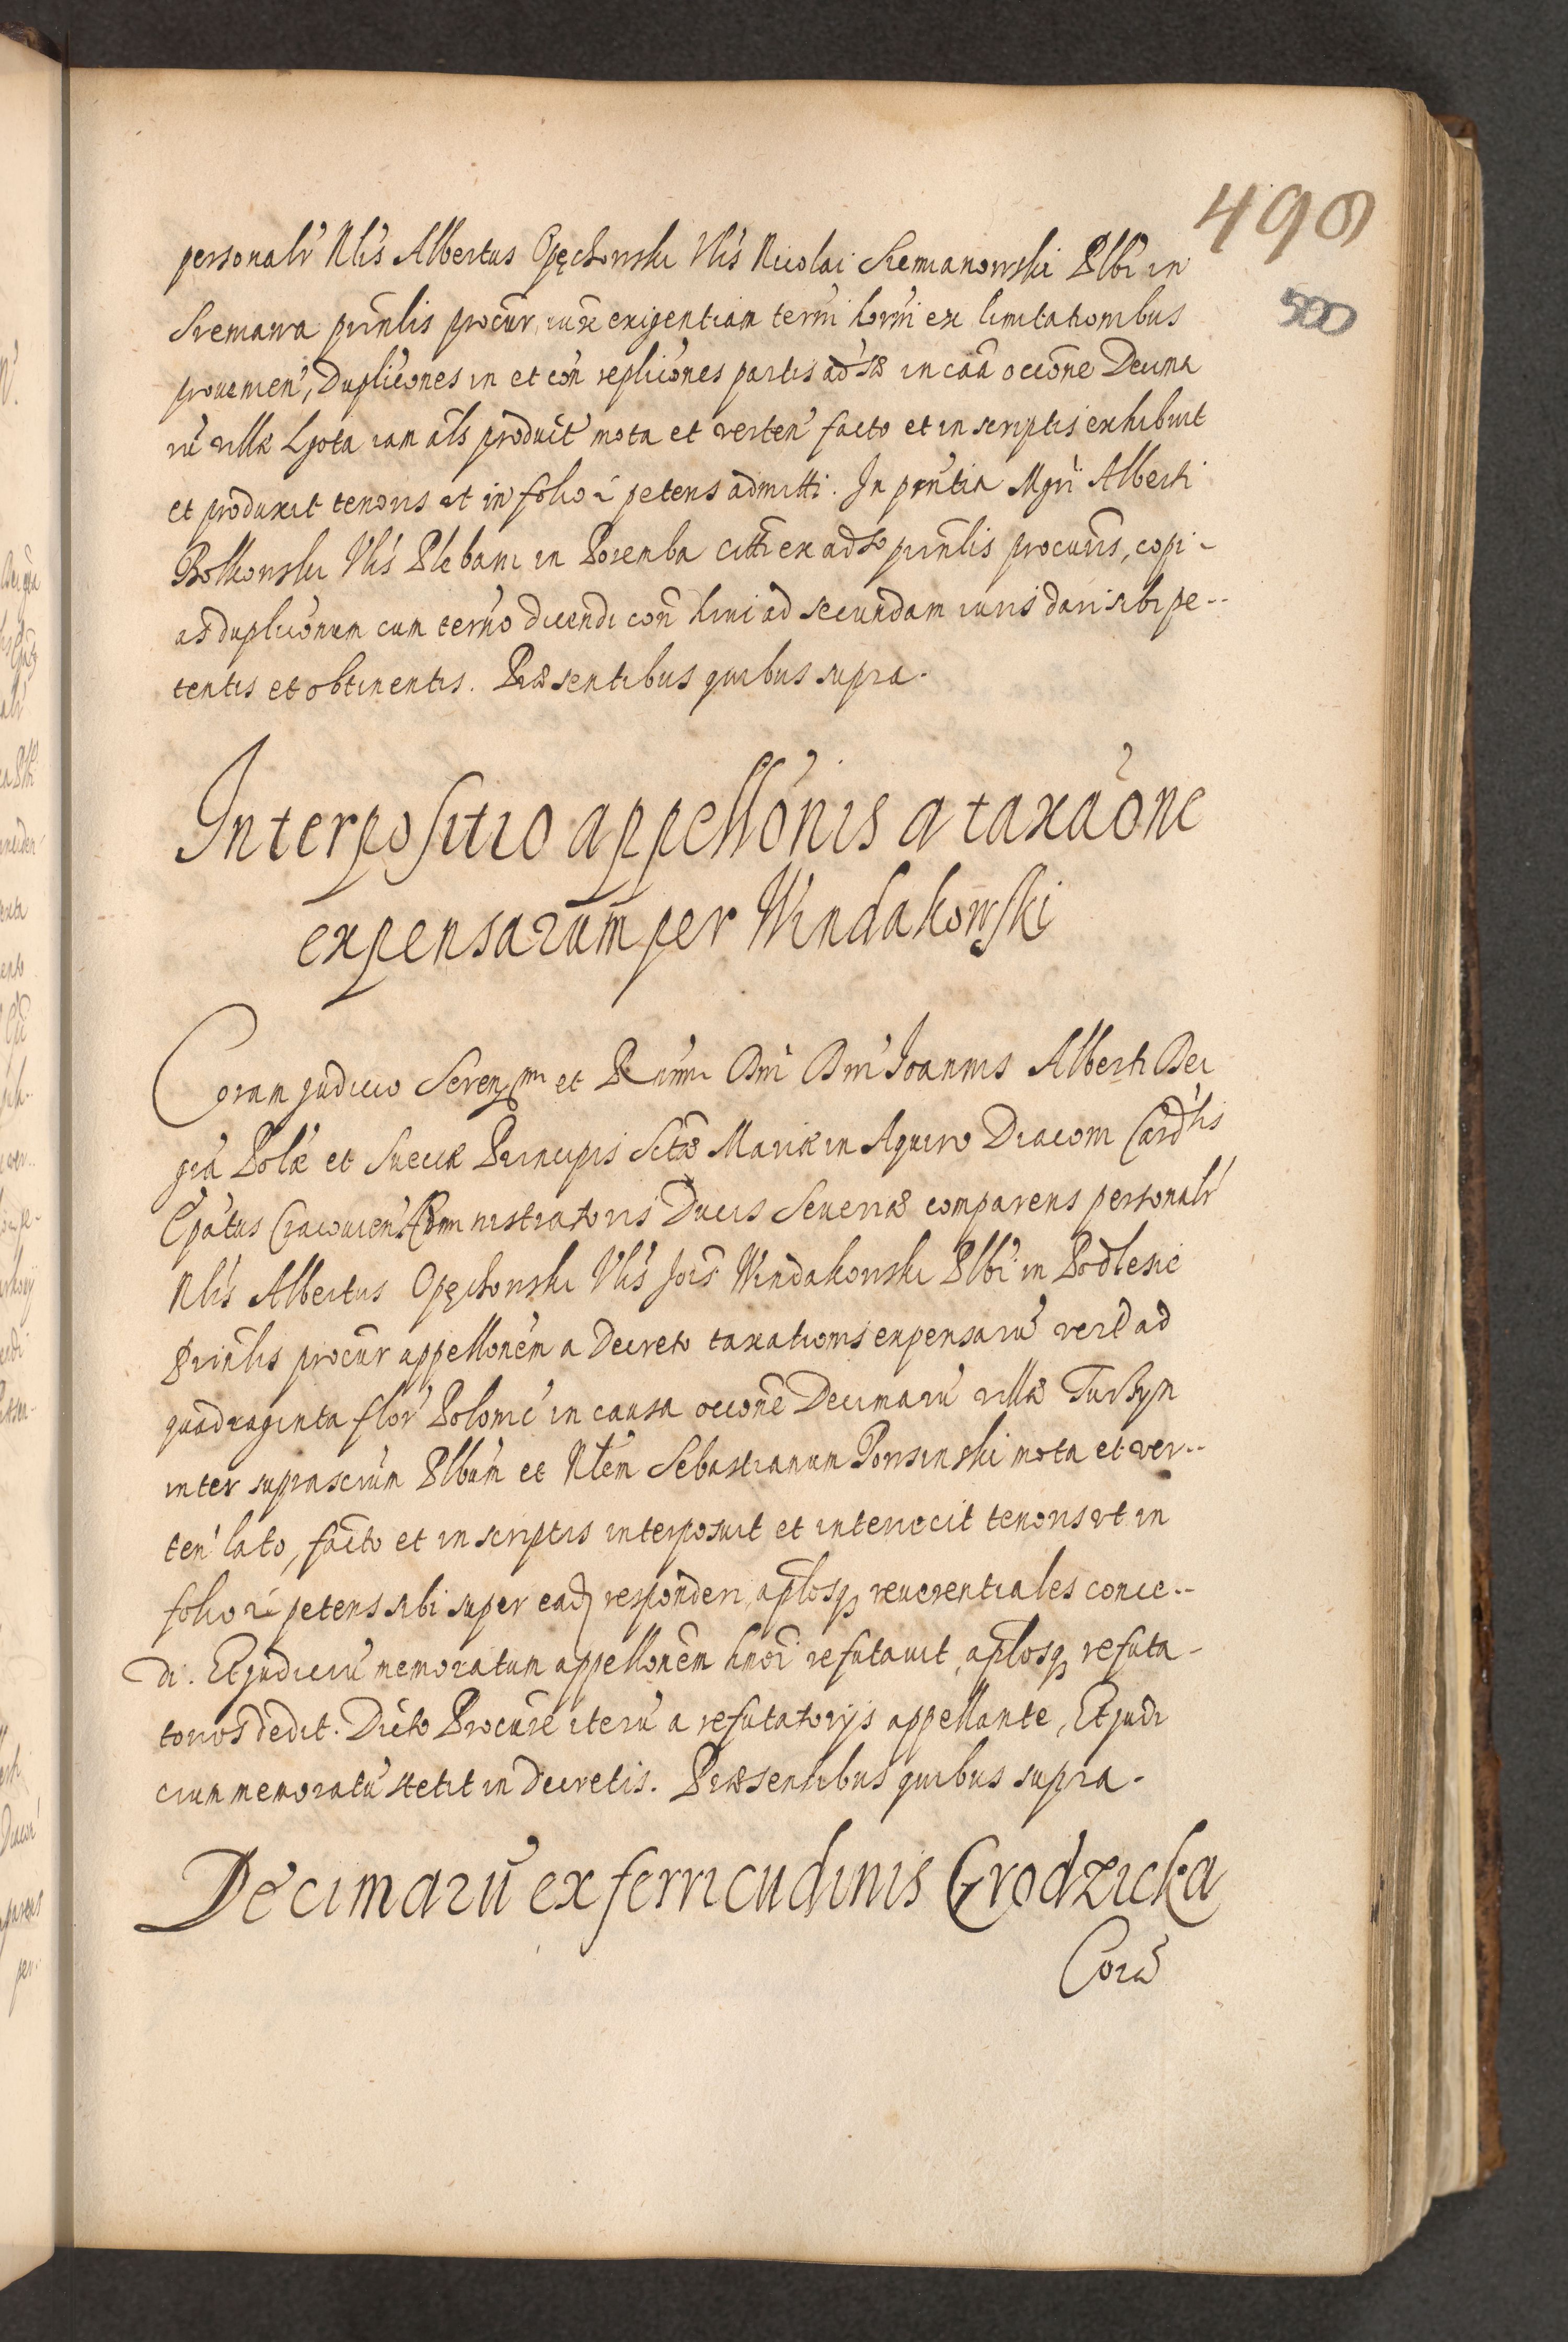 498
500
personalr̃ Nlis Albertus Opęchowski Vlis Nicolai Siemianowski Plbi in
Siemawa prinlis procur, iuxe exigentiam termi hormi ex limitationibus
prouenien, Duplicones in et con replicones partis adsæ in caã occone Decima
rũ villæ Lgota iam als produit mota et verten facto et in scriptis exhibuit
et produxit tenoris ut in folio ŕ petens admitti. In prntia Mgri Alberti
Bolkowski Vlis Plebani in Poremba citti ex adso prinlis procuris, copi-
as duplicionum cum termo dicendi con hmi ad secundam iuris dari sibi pe-
tentis et obtinentis. Præsentibus quibus supra.
Interpositio appellonis a taxaone
expensarum per Windakowski
Coram judicio Sereniss^mi et R^mmi Dni Dni Joannis Alberti Dei
gra Polæ et Sueciæ Principis Sctæ Mariæ in Aquiro Diaconi Cardlis
Epatus Cracouien Administratoris Ducis Seueriæ comparens personalr
Nlis Albertus Opęchowski Vlis Jois Windakowski Plbi in Podlesie
Prinlis procur appellonem a Decreto taxationis expensarũ ad
quadraginta flor Polonic in causa occone Decimarũ villæ
inter suprascrium Plbum et Nlem Sebastianum mota et ver-
ten lato, facto et in scriptis interposuit et interiecit tenoris ut in
folio ŕ petens sibi super eadȝ responderi, aplosqȝ reuerentiales conce-
di. Et judiciũ memoratum appellonem hmoi refutauit, aplosqȝ refuta-
torios dedit. Dicto Procure iterũ a refutatorijs appellante, Et judi
cium memoratũ stetit in decretis. Præsentibus quibus supra.
Decimarũ ex ferricudinis Grodzicka
Corã